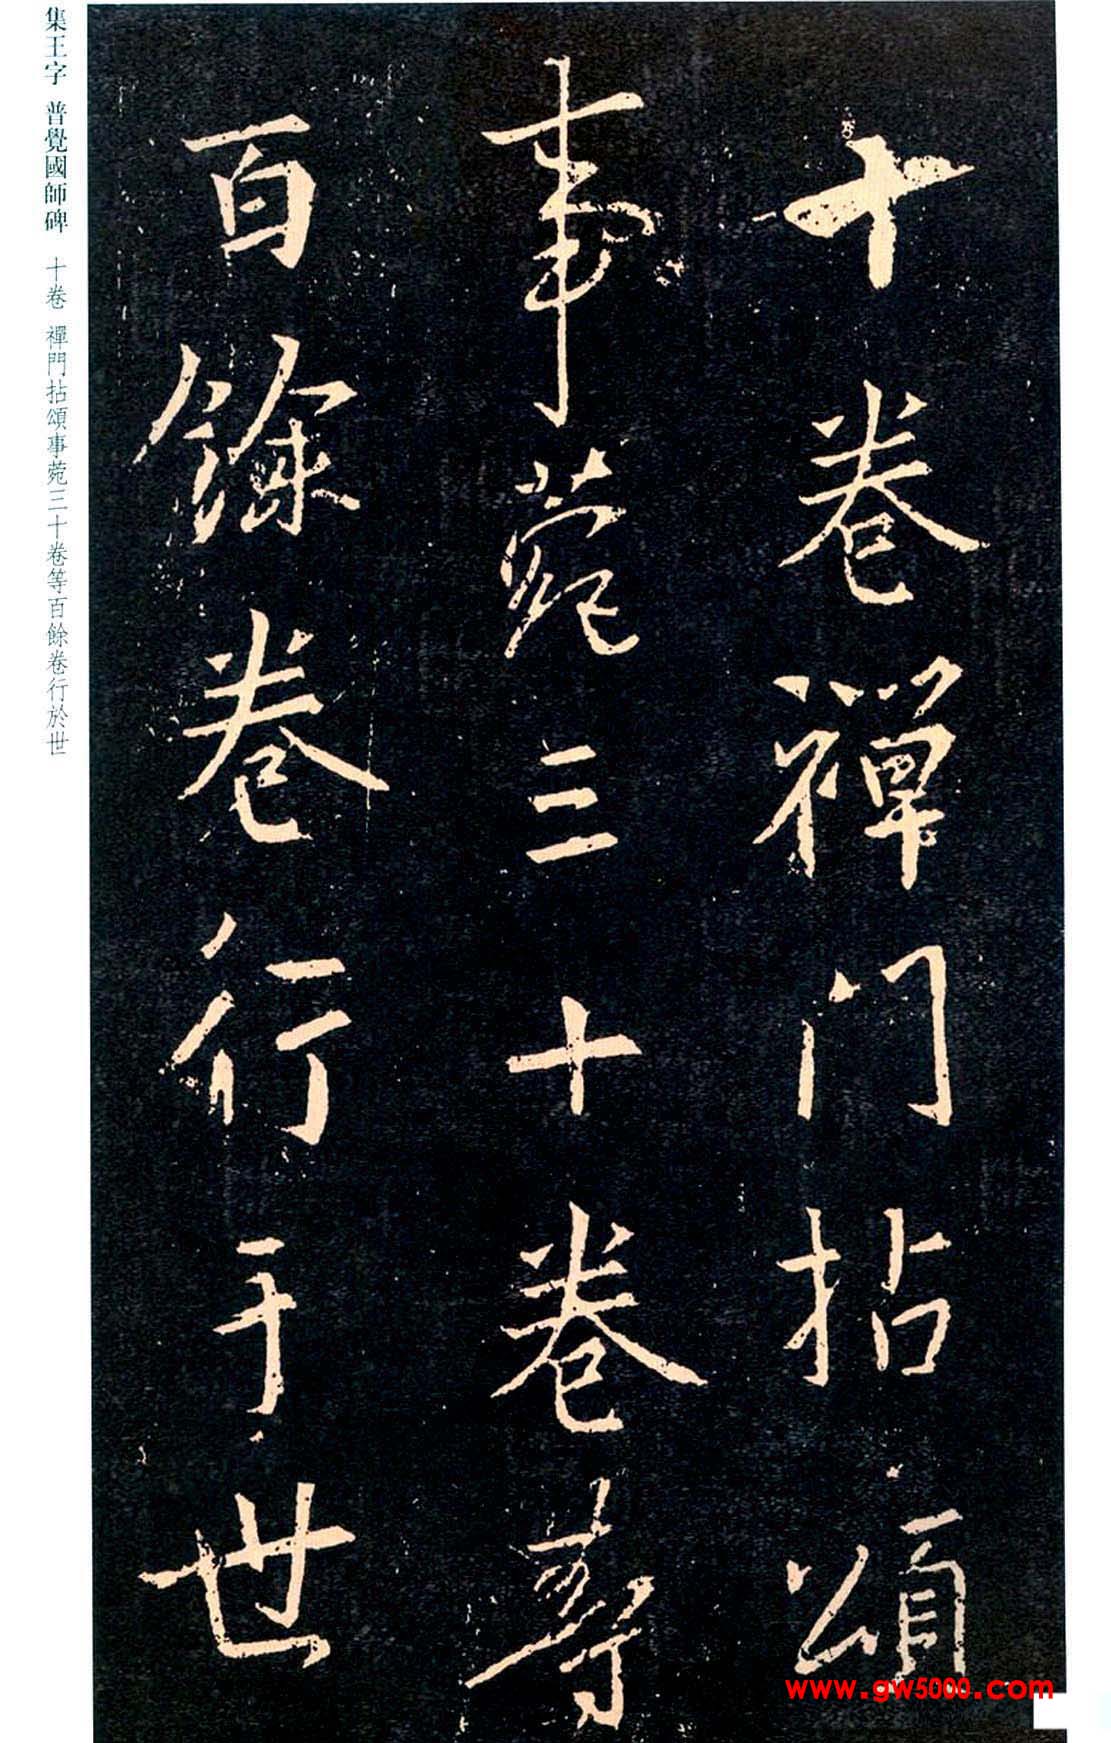 十卷禪門拈頌
事苑三十卷等
百餘卷行于世
集王字 普覺國師碑 十卷 禪門拈頌事苑三十卷等百餘卷行於世
www.gw5000.com